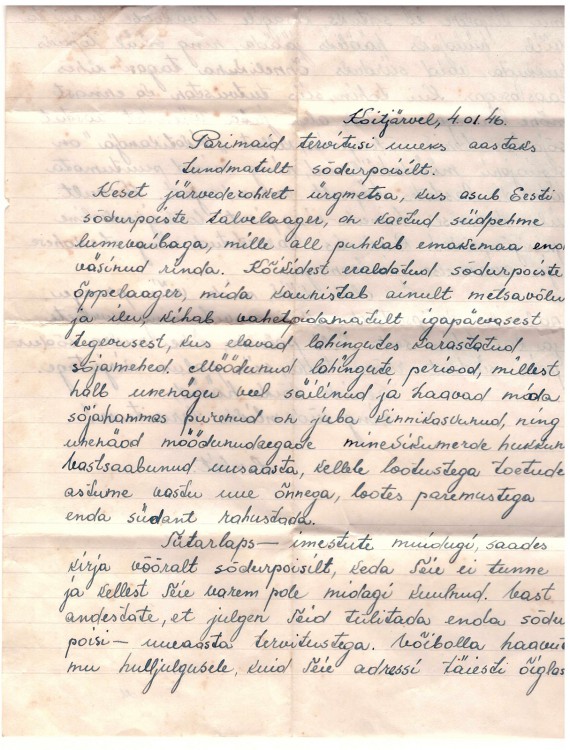 Koitjärvel, 4.01.46.
Parimaid tervitusi uueks aastaks
tundmatult sõdurpoisilt.
Keset järvederohket ürgmetsa, kus asub Eesti
sõdurpoiste talvelaager, on kaetud siidpehme
lumevaibaga, mille all puhkab emakemaa end
väsinud rinda. Kõikidest eraldatud sõdurpoiste
õppelaager, mida kaunistab ainult metsavõlu
ja ilu kihab vahetpidamatult igapäevasest
tegevusest, kus elavad lahingutes karastatud
sõjamehed. Möödunud lahingute periood, millest
halb unenägu veel säilinud ja haavad mida
sõjahammas purenud on juba kinnikasvanud, ning
unenäod möödunudaegade minevikumerde hukkun
Vastsaabunud uusaasta, kellele lootustega toetude
astume vastu uue õnnega, lootes paremustega
enda südant rahustada.
Tütarlaps — imestute muidugi, saades
kirja võõralt sõdurpoisilt, keda Teie ei tunne
ja kellest Teie varem pole midagi kuulnud. Vast
andestate, et julgen Teid tülitada enda sõdu
poisi — uueaasta tervitustega. Võibolla haavu
mu hulljulgusele, kuid Teie adressi täiesti õiglas